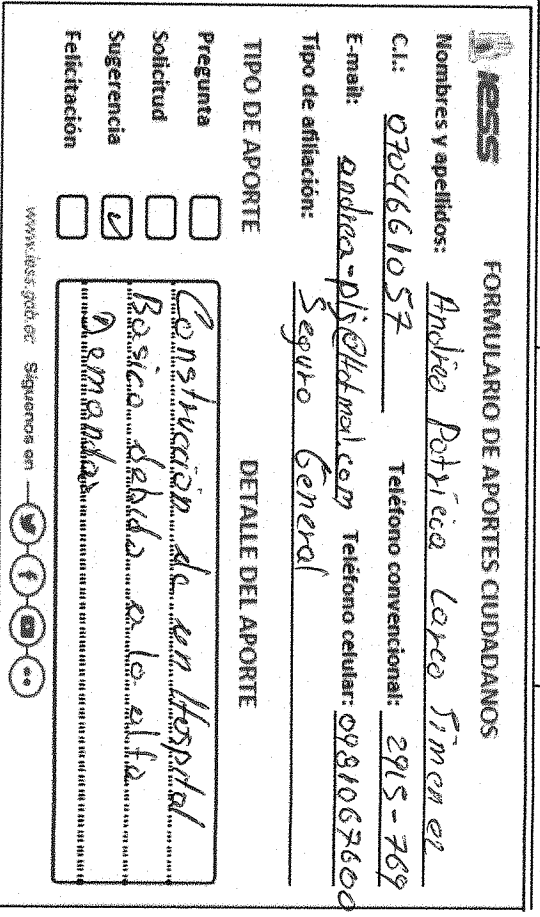 IESS
FORMULARIO DE APORTES CIUDADANOS
Nombres y apellidos: Andrea Patricia
C.I.: 0704661057 Teléfono convencional: 2915-769
E-mail: andrea-plj@Hotmail.com Teléfono celular: 0981067600
Tipo de afiliación: Seguro General
TIPO DE APORTE
DETALLE DEL APORTE
Pregunta
Solicitud
Sugerencia ✓
Felicitación
Construcción de un Hospital
Basico debido a la alta
Demanda
www.iess.gob.ec Síguenos en